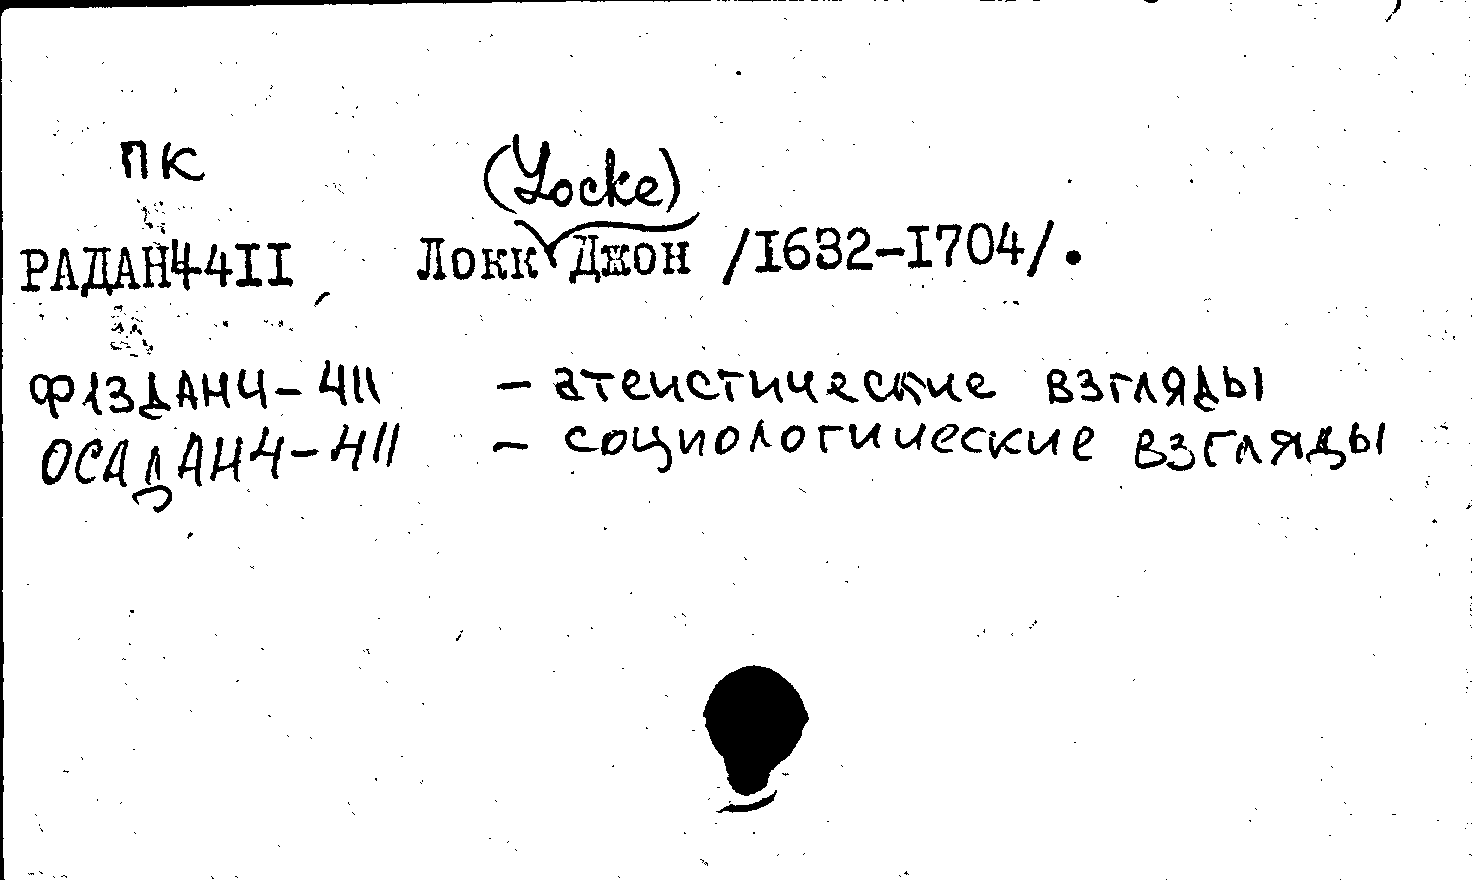 ПК
(Locke)
РАДАН44II Локк Джон /I632-I704/.
Ф1ЗДАН4-411 - атеистические взгляды
ОСАДАН4-411 - социологические взгляды